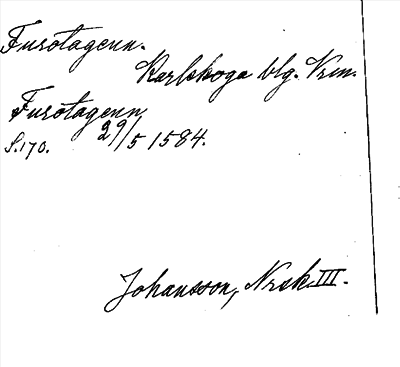 Furötagenn.
Karlskoga blg. Vrm.
Furötagenn
S.170. 29/5 1584.
Johansson, Nrsk III.